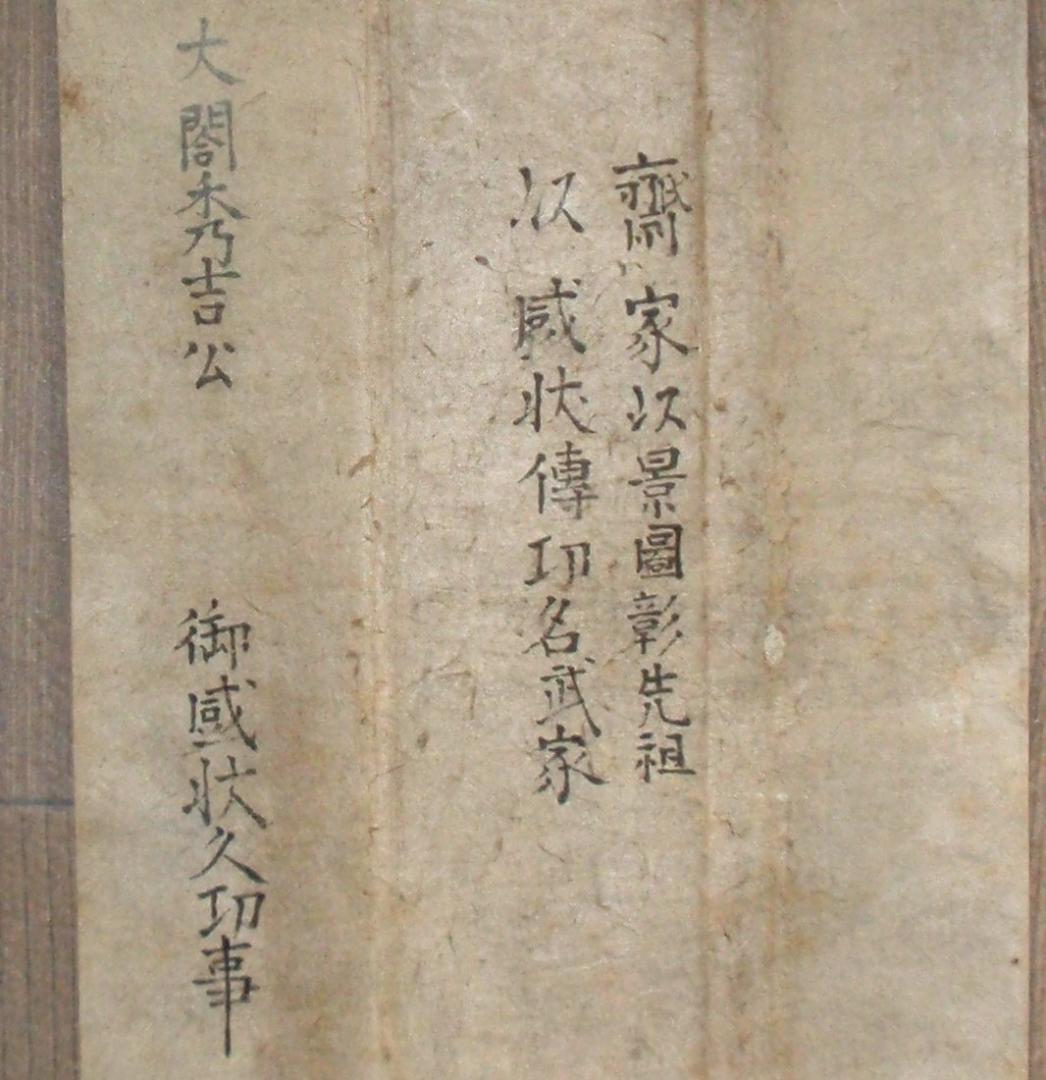 齋家以景圖彰先祖
以感状傳功名武家
大閤秀吉公 御感状久功事